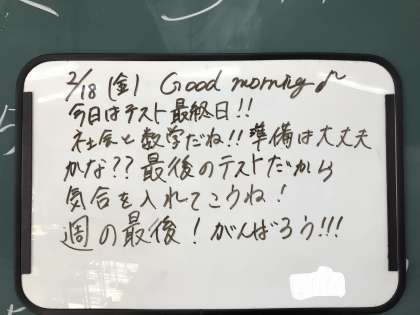 2/18 (金) Good morning♪
今日はテスト最終日!!
社会と数学だね!!準備は大丈夫
かな??最後のテストだから
気合を入れてこうね!
週の最後!がんばろう!!!